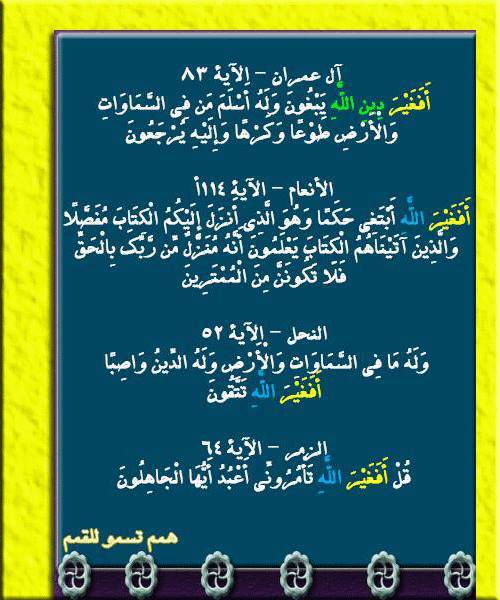 آل عمران – الآية ٨٣
أَفَغَيْرَ دِينِ اللَّهِ يَبْغُونَ وَلَهُ أَسْلَمَ مَن فِى السَّمَاوَاتِ
وَالْأَرْضِ طَوْعًا وَكَرْهًا وَإِلَيْهِ يُرْجَعُونَ
الأنعام – الآية ١١٤أ
أَفَغَيْرَ اللَّهِ أَبْتَغِى حَكَمًا وَهُوَ الَّذِى أَنزَلَ إِلَيْكُمُ الْكِتَابَ مُفَصَّلًا
وَالَّذِينَ آتَيْنَاهُمُ الْكِتَابَ يَعْلَمُونَ أَنَّهُ مُنَزَّلٌ مِّن رَّبِّكَ بِالْحَقِّ
فَلَا تَكُونَنَّ مِنَ الْمُمْتَرِينَ
النحل – الآية ٥٢
وَلَهُ مَا فِى السَّمَاوَاتِ وَالْأَرْضِ وَلَهُ الدِّينُ وَاصِبًا
أَفَغَيْرَ اللَّهِ تَتَّقُونَ
الزمر – الآية ٦٤
قُلْ أَفَغَيْرَ اللَّهِ تَأْمُرُونِّى أَعْبُدُ أَيُّهَا الْجَاهِلُونَ
همم تسمو للقمم